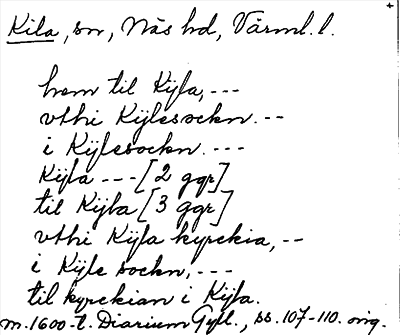 Kila, sn, Näs hd, Värml. l.
hem til Kijla, ---
vthi Kijlesockn. --
i Kijlesockn. ---
Kijla --- [2 ggr]
til Kijla [3 ggr]
vthi Kijla kyrckia, --
i Kijle sockn, ---
til kyrckian i Kijla.
m. 1600-t. Diarium Gyll., ss. 107-110. orig.